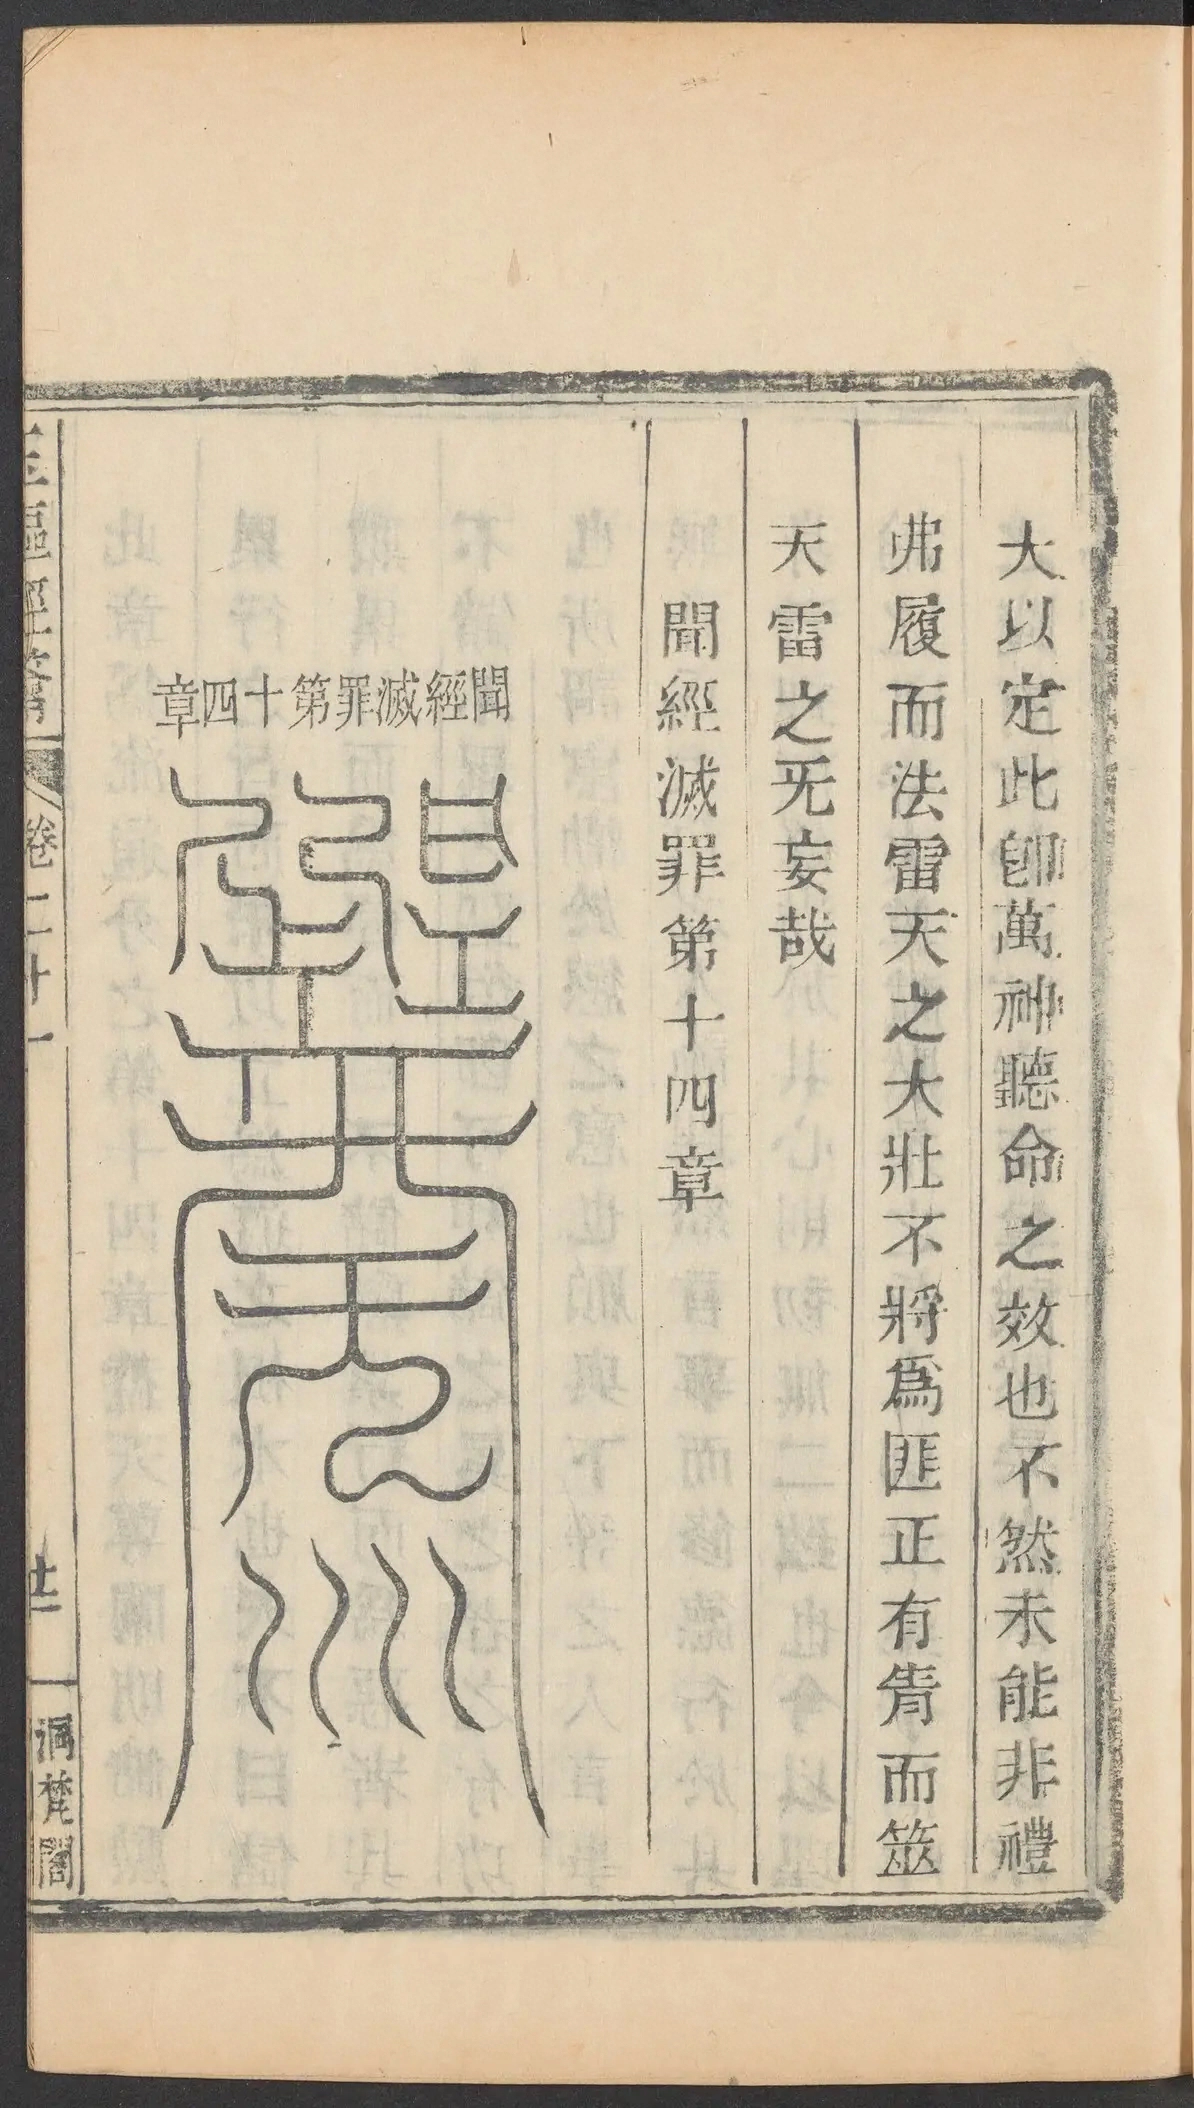 大以定此卽萬神聽命之效也不然未能非禮
弗履而法雷天之大壯不將爲匪正有眚而筮
天雷之无妄哉
聞經滅罪第十四章
聞經滅罪第十四章
玉樞經籥
卷二十一
洞梵閣